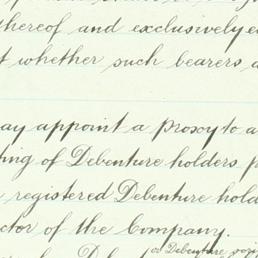 thereof and exclusively e
t whether such bearers a
ay appoint a proxy to a
ting of Debenture holders p
registered Debenture hold
ctor of the Company.
or Debenture